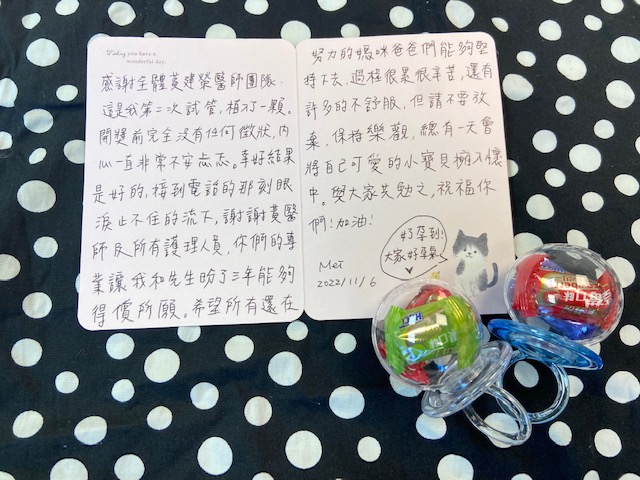 Wishing you have a
wonderful day.
感謝全體黃建榮醫師團隊:
這是我第二次試管,植入一顆。
開獎前完全沒有任何徵狀,内
心一直非常不安忐忑。幸好結果
是好的,接到電話的那刻眼
淚止不住的流下,謝謝黃醫
師及所有護理人員,你們的專
業讓我和先生盼了三年能夠
得償所願。希望所有還在
努力的媽咪爸爸們能夠堅
持下去,過程很累很辛苦,還有
許多的不舒服,但請不要放
棄,保持樂觀,總有一天會
將自己可愛的小寶貝擁入懷
中。與大家共勉之,祝福你
們!加油!
好孕到!
大家好孕氣
Mei
2022/11/6